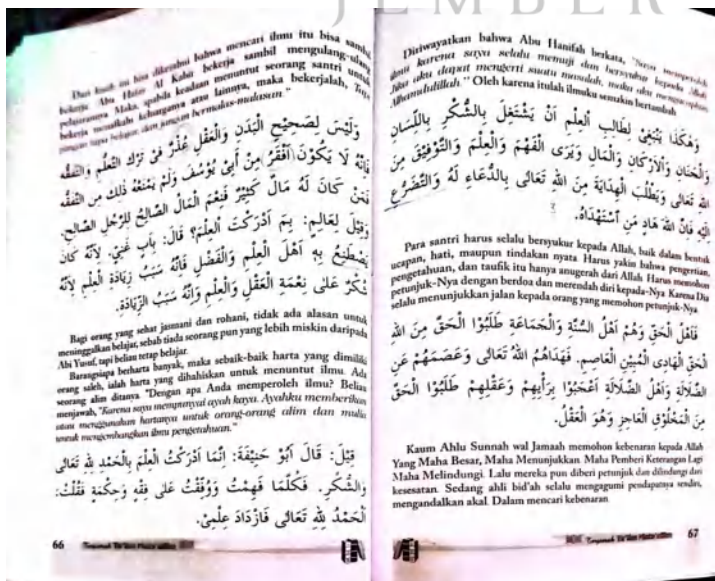 JEMBER
Dari kisah ini bisa diketahui bahwa mencari ilmu itu bisa sambil
bekerja. Abu Hafas Al Kabir bekerja sambil mengulang-ulang
pelajarannya. Maka, apabila keadaan menuntut seorang santri untuk
bekerja menafkahi keluarganya atau lainnya, maka bekerjalah,
jangan lupa belajar, dan jangan bermalas-malasan."
وَلَيْسَ لِصَحِيْحِ الْبَدَنِ وَالْعَقْلِ عُذْرٌ فِيْ تَرْكِ التَّعَلُّمِ وَالتَّفَقُّهِ
فَإِنَّهُ لَا يَكُوْنُ أَفْقَرَ مِنْ أَبِيْ يُوْسُفَ وَلَمْ يَمْنَعْهُ ذٰلِكَ مِنَ التَّفَقُّهِ
فَمَنْ كَانَ لَهُ مَالٌ كَثِيْرٌ فَنِعْمَ الْمَالُ الصَّالِحُ لِلرَّجُلِ الصَّالِحِ.
وَقِيْلَ لِعَالِمٍ: بِمَ أَدْرَكْتَ الْعِلْمَ؟ قَالَ: بِأَبٍ غَنِيٍّ. لِأَنَّهُ كَانَ
يَصْطَنِعُ بِهِ أَهْلَ الْعِلْمِ وَالْفَضْلِ فَإِنَّهُ سَبَبُ زِيَادَةِ الْعِلْمِ لِأَنَّهُ
شُكْرٌ عَلَى نِعْمَةِ الْعَقْلِ وَالْعِلْمِ وَإِنَّهُ سَبَبُ الزِّيَادَةِ.
Bagi orang yang sehat jasmani dan rohani, tidak ada alasan untuk
meninggalkan belajar, sebab tiada seorang pun yang lebih miskin daripada
Abi Yusuf, tapi beliau tetap belajar.
Barangsiapa berharta banyak, maka sebaik-baik harta yang dimiliki
orang saleh, ialah harta yang dihabiskan untuk menuntut ilmu. Ada
seorang alim ditanya. "Dengan apa Anda memperoleh ilmu? Beliau
menjawab, "Karena saya mempunyai ayah kaya. Ayahku memberikan
atau menggunakan hartanya untuk orang-orang alim dan mulia
untuk mengembangkan ilmu pengetahuan."
قِيْلَ: قَالَ أَبُوْ حَنِيْفَةَ: إِنَّمَا أَدْرَكْتُ الْعِلْمَ بِالْحَمْدِ لِلّٰهِ تَعَالَى
وَالشُّكْرِ. فَكُلَّمَا فَهِمْتُ وَوُفِّقْتُ عَلَى فِقْهٍ وَحِكْمَةٍ فَقُلْتُ:
الْحَمْدُ لِلّٰهِ تَعَالَى فَازْدَادَ عِلْمِيْ.
66
Diriwayatkan bahwa Abu Hanifah berkata, "Saya memperoleh
ilmu karena saya selalu memuji dan bersyukur kepada Allah
Jika aku dapat mengerti suatu masalah, maka aku mengucapkan
Alhamdulillah." Oleh karena itulah ilmuku semakin bertambah
وَهٰكَذَا يَنْبَغِيْ لِطَالِبِ الْعِلْمِ أَنْ يَشْتَغِلَ بِالشُّكْرِ بِاللِّسَانِ
وَالْجَنَانِ وَالْأَرْكَانِ وَالْمَالِ وَيَرَى الْفَهْمَ وَالْعِلْمَ وَالتَّوْفِيْقَ مِنَ
اللهِ تَعَالَى وَيَطْلُبَ الْهِدَايَةَ مِنَ اللهِ تَعَالَى بِالدُّعَاءِ لَهُ وَالتَّضَرُّعِ
إِلَيْهِ فَإِنَّ اللهَ هَادٍ مَنِ اسْتَهْدَاهُ.
Para santri harus selalu bersyukur kepada Allah, baik dalam bentuk
ucapan, hati, maupun tindakan nyata Harus yakin bahwa pengertian,
pengetahuan, dan taufik itu hanya anugerah dari Allah Harus memohon
petunjuk-Nya dengan berdoa dan merendah diri kepada-Nya Karena Dia
selalu menunjukkan jalan kepada orang yang memohon petunjuk-Nya
فَأَهْلُ الْحَقِّ وَهُمْ أَهْلُ السُّنَّةِ وَالْجَمَاعَةِ طَلَبُوْا الْحَقَّ مِنَ اللهِ
الْحَقِّ الْهَادِى الْمُبِيْنِ الْعَاصِمِ. فَهَدَاهُمُ اللهُ تَعَالَى وَعَصَمَهُمْ عَنِ
الضَّلَالَةِ وَأَهْلُ الضَّلَالَةِ أُعْجِبُوْا بِرَأْيِهِمْ وَعَقْلِهِمْ طَلَبُوْا الْحَقَّ
مِنَ الْمَخْلُوْقِ الْعَاجِزِ وَهُوَ الْعَقْلُ.
Kaum Ahlu Sunnah wal Jamaah memohon kebenaran kepada Allah
Yang Maha Besar, Maha Menunjukkan Maha Pemberi Keterangan Lagi
Maha Melindungi. Lalu mereka pun diberi petunjuk dan dilindungi dari
kesesatan. Sedang ahli bid'ah selalu mengagumi pendapatnya sendiri,
mengandalkan akal. Dalam mencari kebenaran
67